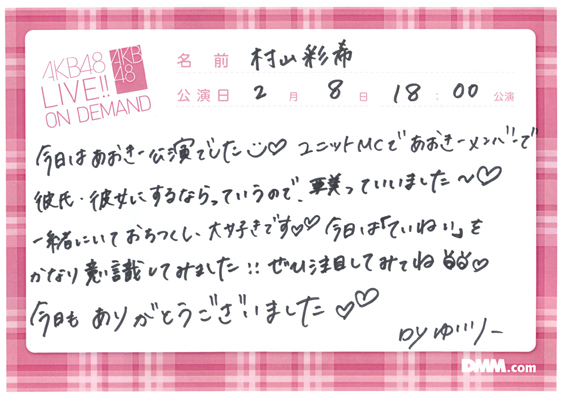 AKB48
LIVE!!
ON DEMAND
AKB
48
名前 村山彩希
公演日 2月8日 18:00 公演
今日はあおきー公演でした♡ ユニットMCであおきーメンバーで
彼氏・彼女にするならっていうので、っていいました〜♡
一緒にいておちつくし、大好きです♡♡ 今日は「ていねい」を
かなり意識してみました!! ぜひ注目してみてね♡
今日もありがとうございました♡♡
by ゆいりー
DMM.com